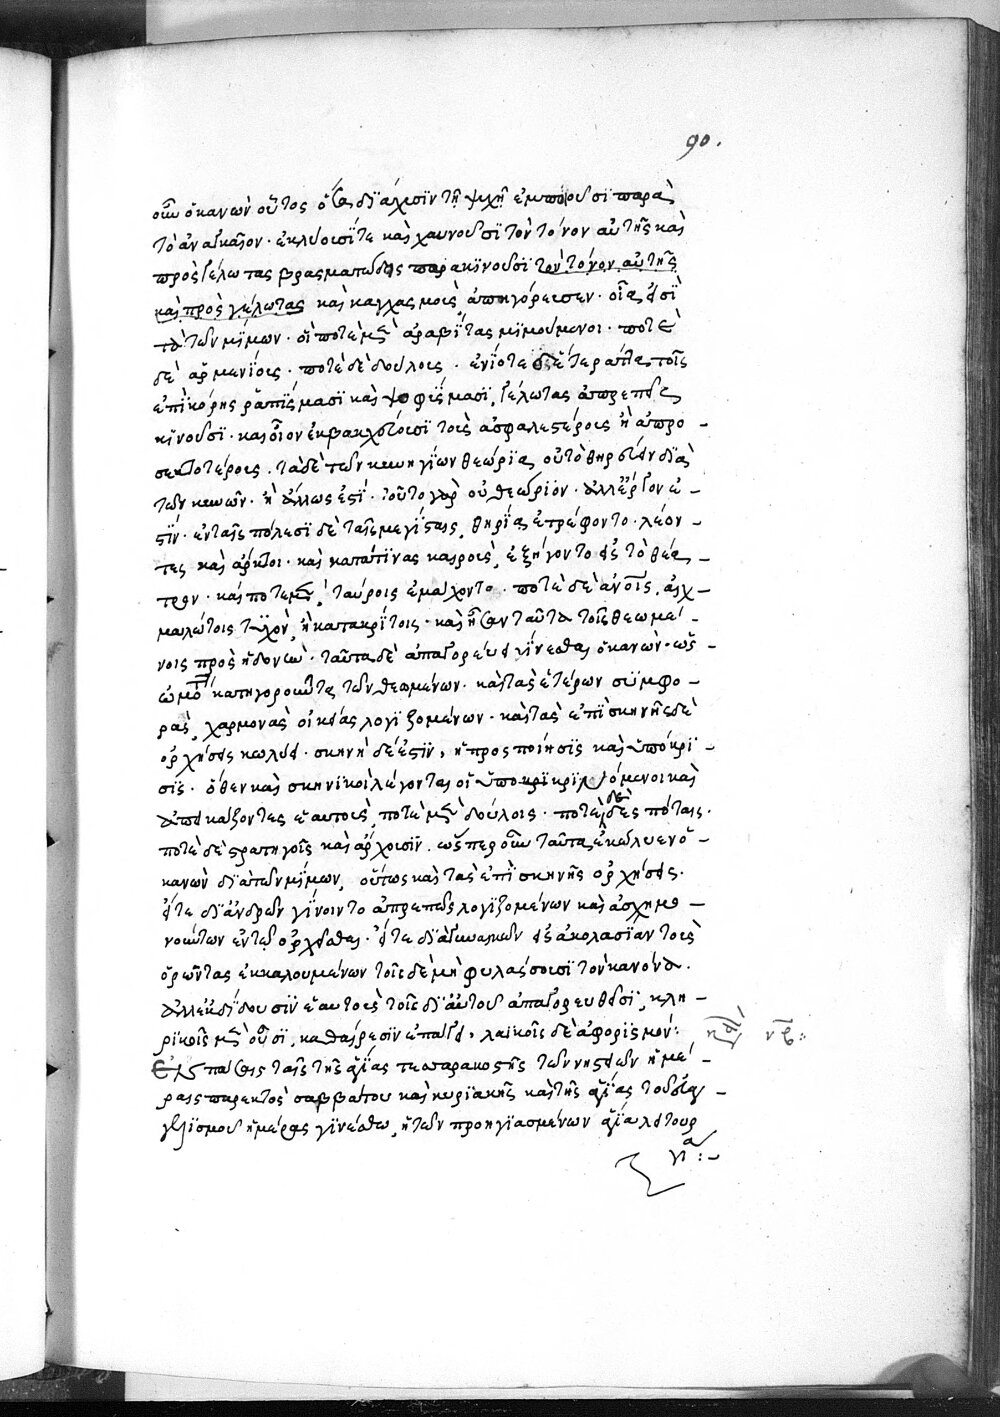 90.
οὖν ὁ κανὼν οὗτος ὅσα διάχυσιν τῇ ψυχῇ ἐμποιοῦσι παρὰ
τὸ ἀναγκαῖον· ἐκλύουσί τε καὶ χαυνοῦσι τὸν τόνον αὐτῆς καὶ
πρὸς γέλωτας παρακινοῦσι τὸν τόνον αὐτῆς
καὶ πρὸς γέλωτας καὶ καγχασμοὺς ἀπηγόρευσεν· οἷα εἰσὶ
τὰ τῶν μίμων· οἵ ποτε μὲν ἀραβίτας μιμούμενοι· ποτὲ
δὲ ἀρμενίους· ποτὲ δὲ δούλους· ἐνίοτε δὲ τοῖς
ἐπὶ κόρης ῥαπίσμασι καὶ ψοφίσμασι, γέλωτας ἀπρεπεῖς
κινοῦσι· καὶ οἷον ἐκβακχεύουσι τοὺς ἀφαλεστέρους ἢ ἀπρο -
σεκτοτέρους. τὰ δὲ τῶν κυνηγίων θεώρια, οὐ τὸ θηρᾶν διὰ
τῶν κυνῶν· ἢ ἄλλως ἐστί· τοῦτο γὰρ οὐ θεώριον· ἀλλ' ἔργον ἐ -
στίν· ἐν ταῖς πόλεσι δὲ ταῖς μεγίσταις, θηρία ἐτρέφοντο· λέον -
τες καὶ ἄρκτοι· καὶ κατά τινας καιροὺς, ἐξήγοντο εἰς τὸ θέα -
τρον· καὶ ποτὲ μὲν, ταύροις ἐμάχοντο· ποτὲ δὲ ἀνοις, αἰχ -
μαλώτοις τυχὸν, ἢ κατακρίτοις· καὶ ἦσαν ταῦτα τοῖς θεωμέ -
νοις πρὸς ἡδονὴν· ταῦτα δὲ ἀπαγορεύει γίνεσθαι ὁ κανών· ὡς
ὠμότητα κατηγοροῦντα τῶν θεωμένων· καὶ τὰς ἑτέρων συμφο -
ρὰς, χαρμονὰς οἰκείας λογιζομένων· καὶ τὰς ἐπὶ σκηνῆς δὲ
ὀρχήσεις κωλύει· σκηνὴ δέ ἐστιν, ἡ προσποίησις καὶ ὑπόκρι -
σις· ὅθεν καὶ σκηνικοὶ λέγονται οἱ ὑποκρινόμενοι καὶ
ἀπεικάζοντες ἑαυτοὺς, ποτὲ μὲν δούλοις· ποτὲ δὲ δεσπόταις·
ποτὲ δὲ στρατηγοῖς καὶ ἄρχουσιν. ὥσπερ οὖν ταῦτα ἐκώλυεν ὁ -
κανὼν διὰ τῶν μίμων, οὕτως καὶ τὰς ἐπὶ σκηνῆς ὀρχήσεις.
εἴτε δι' ἀνδρῶν γίνοιντο ἀπρεπῶς λογιζομένων καὶ ἀσχημο -
νούντων ἐν τῷ ὀρχεῖσθαι· εἴτε διὰ γυναικῶν εἰς ἀκολασίαν τοὺς
ὁρῶντας ἐκκαλουμένων τοῖς δὲ μὴ φυλάσσουσι τὸν κανόνα.
ἀλλ' ἐκδιδοῦσιν ἑαυτοὺς τοῖς δι' αὐτοῦ ἀπαγορευθεῖσι, κλη -
ρικοῖς μὲν οὖσι, καθαίρεσιν ἐπάγει, λαϊκοῖς δὲ ἀφορισμόν:
Ἐν πάσαις ταῖς τῆς ἁγίας τεσσαρακοστῆς τῶν νηστειῶν ἡμέ -
ραις παρεκτὸς σαββάτου καὶ κυριακῆς καὶ τῆς ἁγίας τοῦ εὐαγ -
γελισμοῦ ἡμέρας γινέσθω, ἡ τῶν προηγιασμένων ἁγία λειτουρ
γία :-